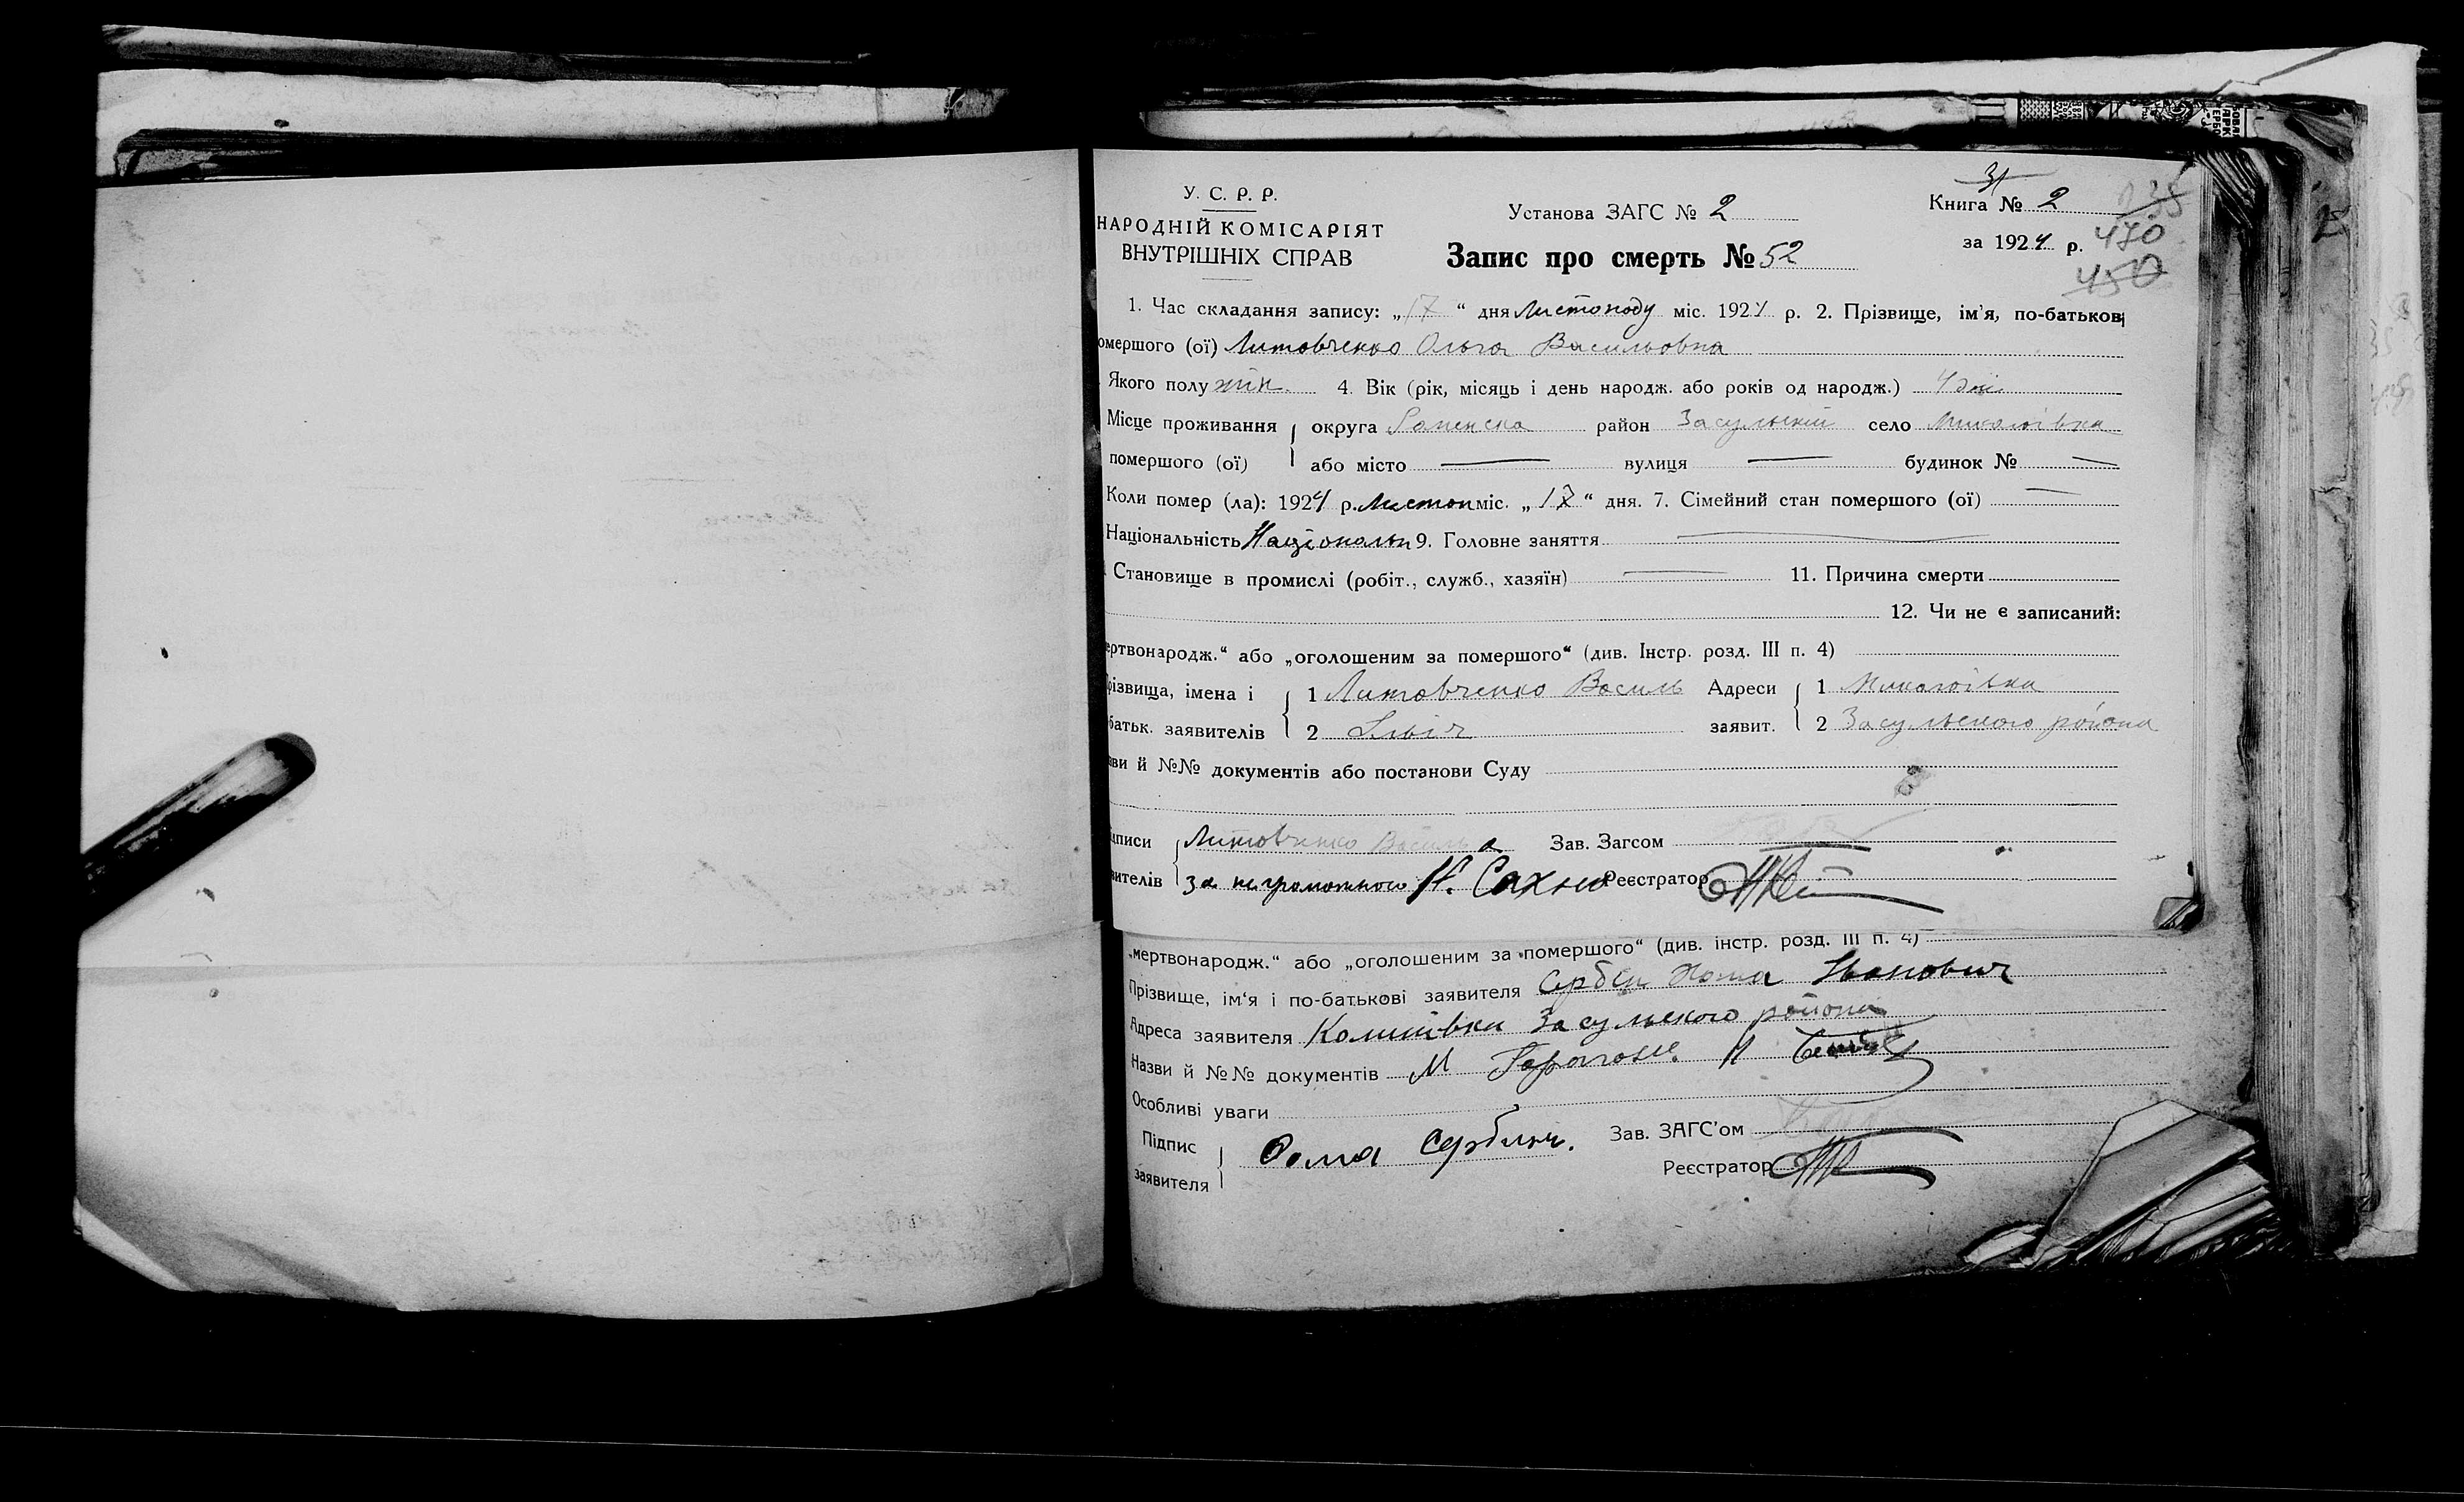 У. С. Р. Р.
НАРОДНІЙ КОМІСАРІЯТ
ВНУТРІШНІХ СПРАВ
Установа ЗАГС № 2
Запис про смерть № 52
31
Книга № 2
за 1924 р.
470
450
1. Час складання запису: „17“ дня Листопаду міс. 1924 р. 2. Прізвище, ім'я, по-батькові
омершого (ої) Литовченко Ольга Васильовна
Якого полу жін. 4. Вік (рік, місяць і день народж. або років од народж.) 4 дні
Місце проживання округа Роменська район Засульскій село Миколаївка
помершого (ої) або місто — вулиця — будинок № —
Коли помер (ла): 1924 р. Листоп міс. „17“ дня. 7. Сімейний стан помершого (ої) —
Національність 9. Головне заняття —
Становище в промислі (робіт., служб., хазяїн) — 11. Причина смерти
12. Чи не є записаний:
ертвонародж.“ або „оголошеним за помершого“ (див. Інстр. розд. III п. 4)
різвища, імена і 1 Литовченко Василь Адреси 1 Миколаївка
батьк. заявителів 2 заявит. 2 Засульского района
зви й №№ документів або постанови Суду
дписи Литовченко Василь Зав. Загсом
вителів за неграмотного Реєстратор
„мертвонародж.“ або „оголошеним за помершого“ (див. інстр. розд. III п. 4)
Прізвище, ім'я і по-батькові заявителя Сербин Хома Іванович
Адреса заявителя Засульского района
Назви й №№ документів
Особливі уваги
Підпис Фома Сербин. Зав. ЗАГС'ом
заявителя Реєстратор